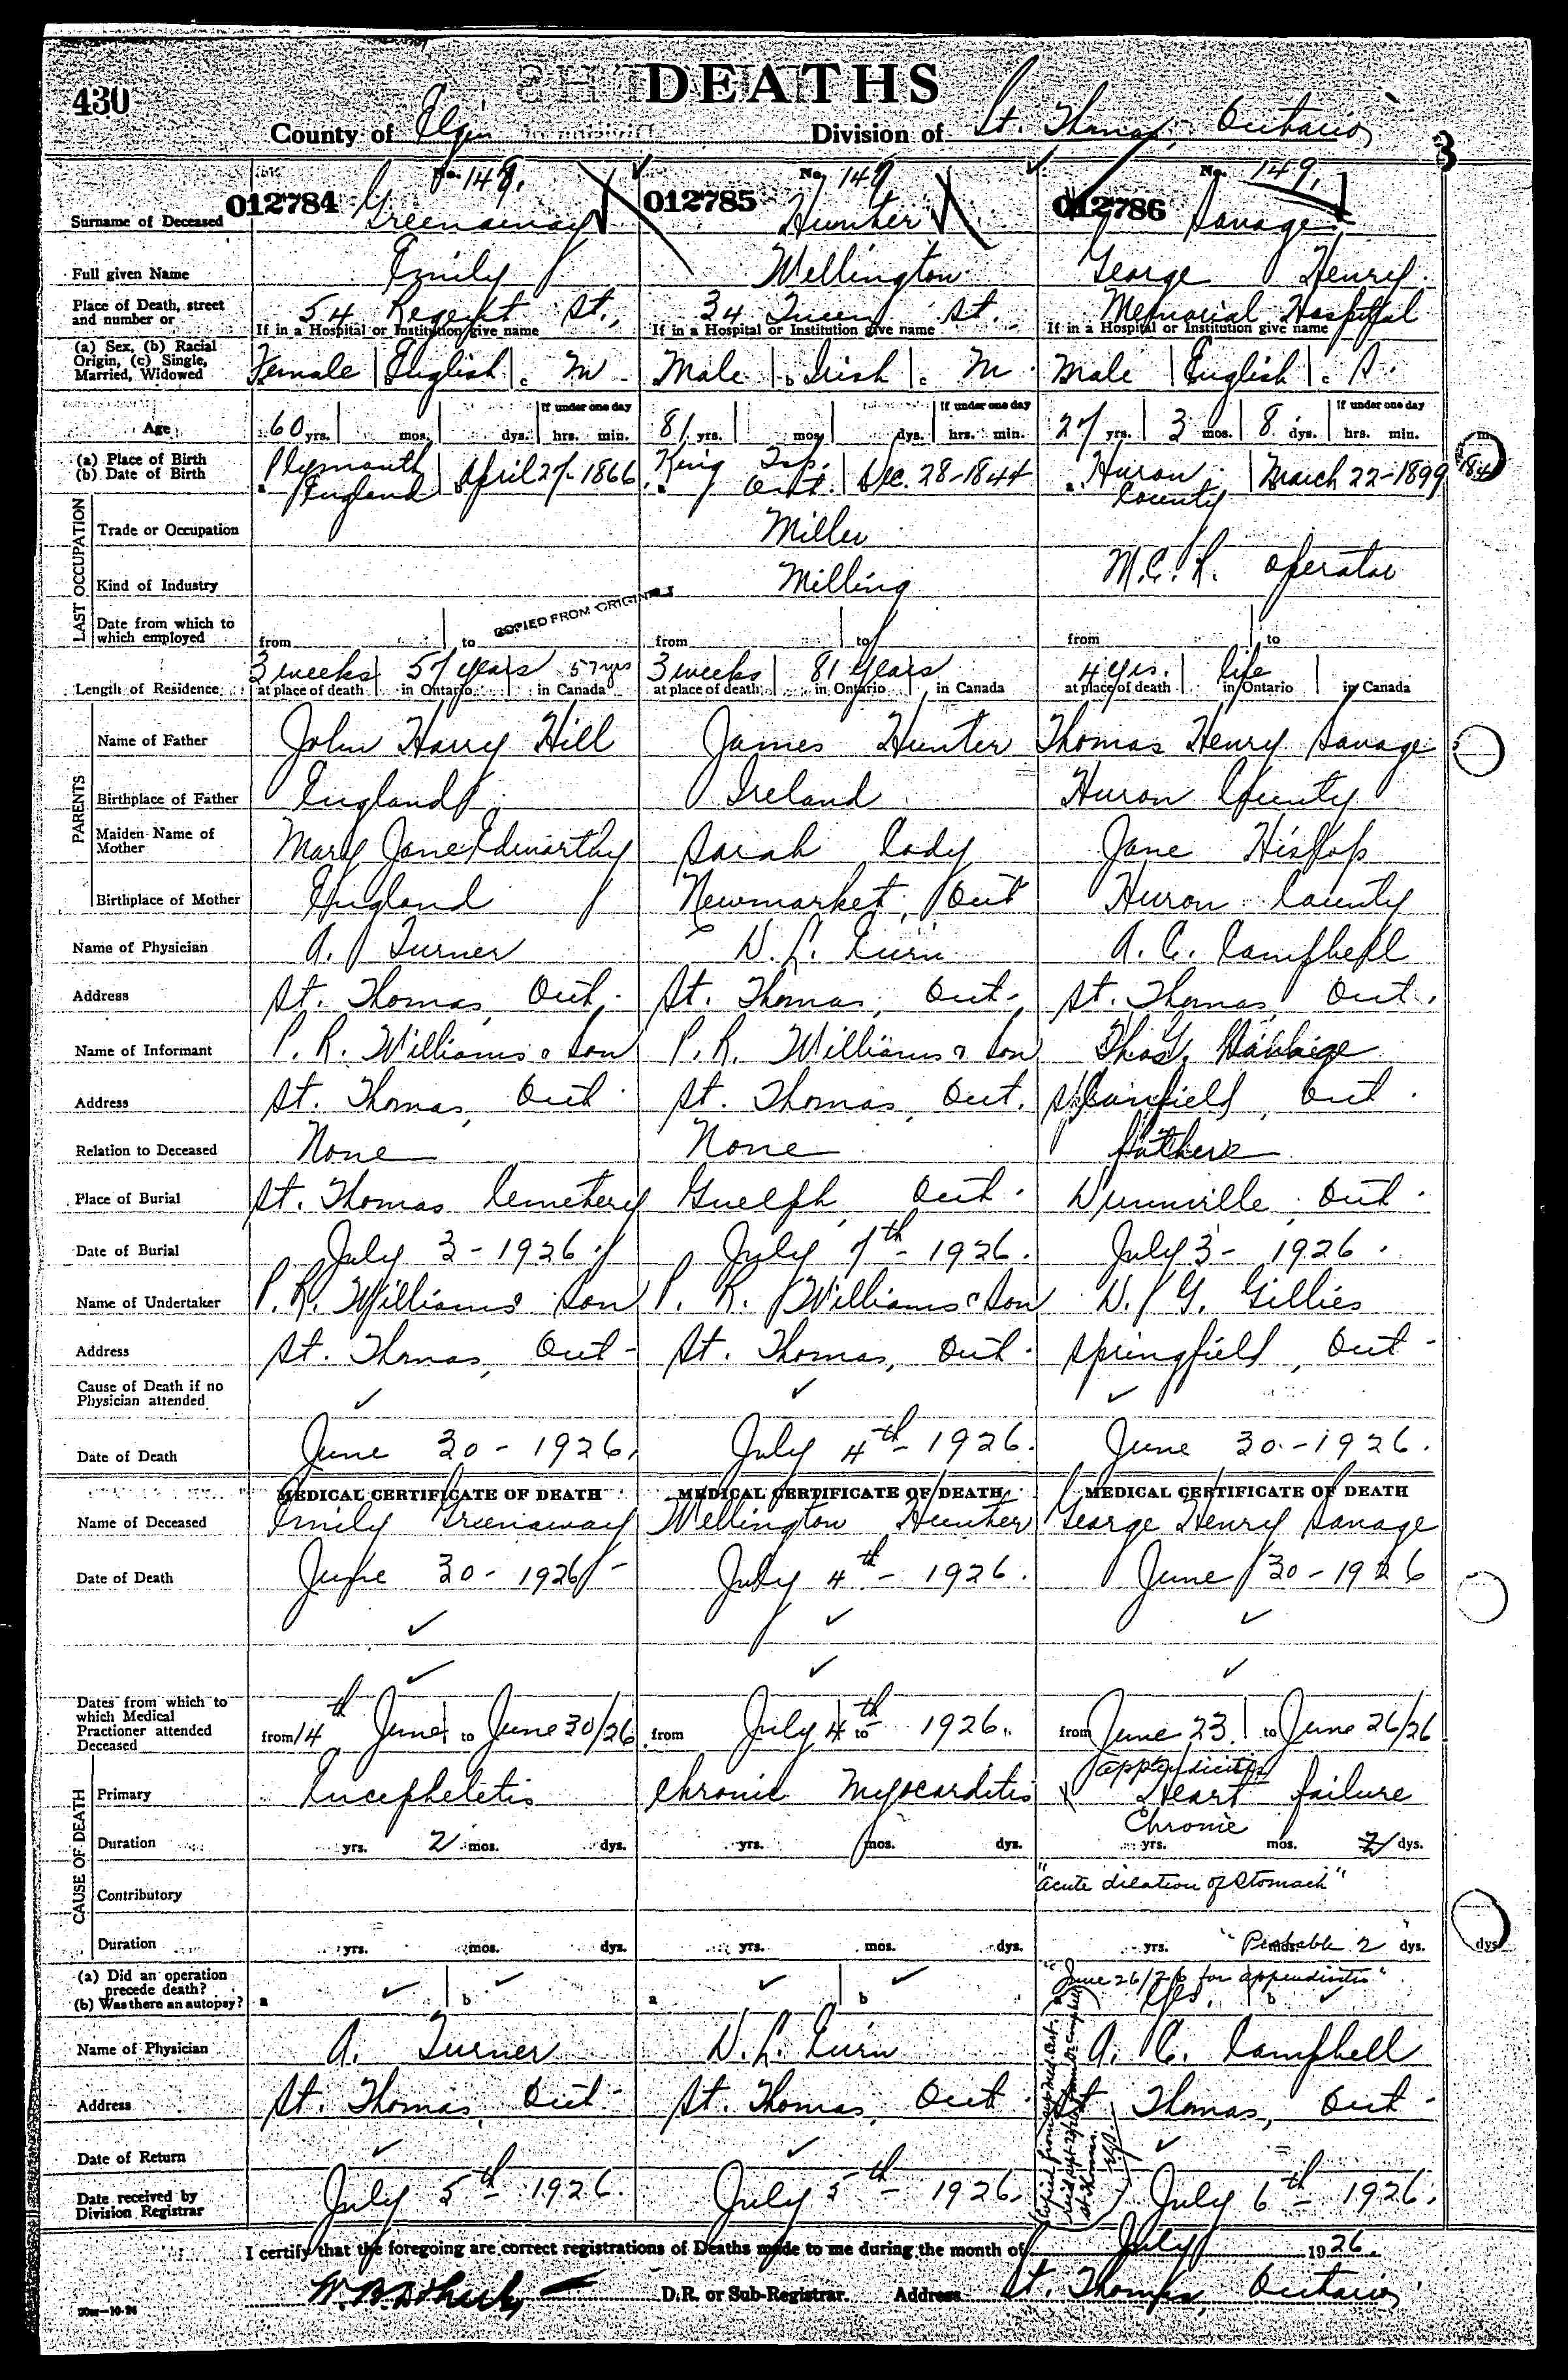 430
DEATHS
County of Elgin Division of St. Thomas, Ontario
3
No. 147. No. 149 No. 149.
Surname of Deceased 012784 Greenaway 012785 Hunter 012786 Savage
Full given Name Emily Wellington George Henry
Place of Death, street and number or 54 Regent St., 34 Queen St. Memorial Hospital
If in a Hospital or Institution give name If in a Hospital or Institution give name If in a Hospital or Institution give name
(a) Sex, (b) Racial Origin, (c) Single, Married, Widowed Female English c M Male b Irish c M Male English c S.
If under one day If under one day If under one day
Age 60 yrs. mos. dys. hrs. min. 81 yrs. mos. dys. hrs. min. 27 yrs. 3 mos. 8 dys. hrs. min.
(a) Place of Birth (b) Date of Birth a Plymouth England April 27-1866 a King Tsp. Ont. Dec. 28-1844 a Huron County March 22-1899 184
LAST OCCUPATION
Trade or Occupation Miller
Kind of Industry Milling M.C.R. operator
COPIED FROM ORIGINALS
Date from which to which employed from to from to from to
Length of Residence 3 weeks 57 years 57 yrs 3 weeks 81 years 4 yrs. life
at place of death in Ontario in Canada at place of death in Ontario in Canada at place of death in Ontario in Canada
PARENTS
Name of Father John Harry Hill James Hunter Thomas Henry Savage
Birthplace of Father England Ireland Huron County
Maiden Name of Mother Mary Jane Edworthy Sarah Cody Jane Hislop
Birthplace of Mother England Newmarket, Ont Huron County
Name of Physician A. Turner D. L. A. C. Campbell
Address St. Thomas, Ont. St. Thomas, Ont. St. Thomas, Ont.
Name of Informant P. R. Williams & Son P. R. Williams & Son Thos.
Address St. Thomas, Ont. St. Thomas, Ont. Ont.
Relation to Deceased None None father
Place of Burial St. Thomas Cemetery Guelph, Ont. Dunnville, Ont.
Date of Burial July 3-1926. July 7th-1926. July 3-1926.
Name of Undertaker P. R. Williams & Son P. R. Williams & Son D. G. Gillies
Address St. Thomas, Ont- St. Thomas, Ont. Springfield, Ont-
Cause of Death if no Physician attended ✓ ✓ ✓
Date of Death June 30-1926. July 4th-1926. June 30-1926.
MEDICAL CERTIFICATE OF DEATH MEDICAL CERTIFICATE OF DEATH MEDICAL CERTIFICATE OF DEATH
Name of Deceased Emily Greenaway Wellington Hunter George Henry Savage
Date of Death June 30-1926- July 4th-1926. June 30-1926
✓ ✓ ✓
✓ ✓ ✓
Dates from which to which Medical Practioner attended Deceased from 14th June to June 30/26 from July 4th to 1926. from June 23. to June 26/26
CAUSE OF DEATH
appendicitis
Primary Encepheletis Chronic Myocarditis Heart failure
Chronic
Duration yrs. 2 mos. dys. yrs. mos. dys. yrs. mos. 2 dys.
Contributory "Acute dilation of stomach"
Duration yrs. mos. dys. yrs. mos. dys. yrs. "Probable 2" dys. dys
"June 26/26 for appendicitis"
(a) Did an operation precede death? (b) Was there an autopsy? a ✓ b ✓ a ✓ b ✓ a Yes. b ✓
Name of Physician A. Turner D. L. A. C. Campbell
Address St. Thomas, Ont- St. Thomas, Ont. St Thomas, Ont-
Date of Return ✓ ✓ ✓
Date received by Division Registrar July 5th 1926. July 5th-1926. July 6th-1926.
I certify that the foregoing are correct registrations of Deaths made to me during the month of July 1926.
D.R. or Sub-Registrar. Address St. Thomas, Ontario